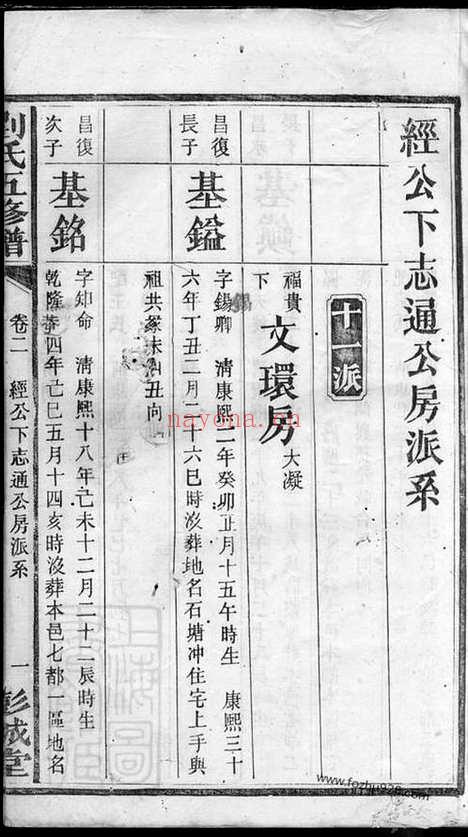 經公下志通公房派系
十一派
福貴下 文環房 大凝
昌復長子 基鎰
字錫卿 清康熙二年癸卯正月十五午時生 康熙三十
六年丁丑二月二十六巳時沒葬地名石塘冲住宅上手與
祖共冢未山丑向
昌復次子 基銘
字知命 清康熙十八年己未十二月二十二辰時生
乾隆十四年己巳五月十四亥時沒葬本邑七都一區地名
劉氏五修譜 卷二 經公下志通公房派系 一 彭城堂
nayona.cn
www.fozhu920.com